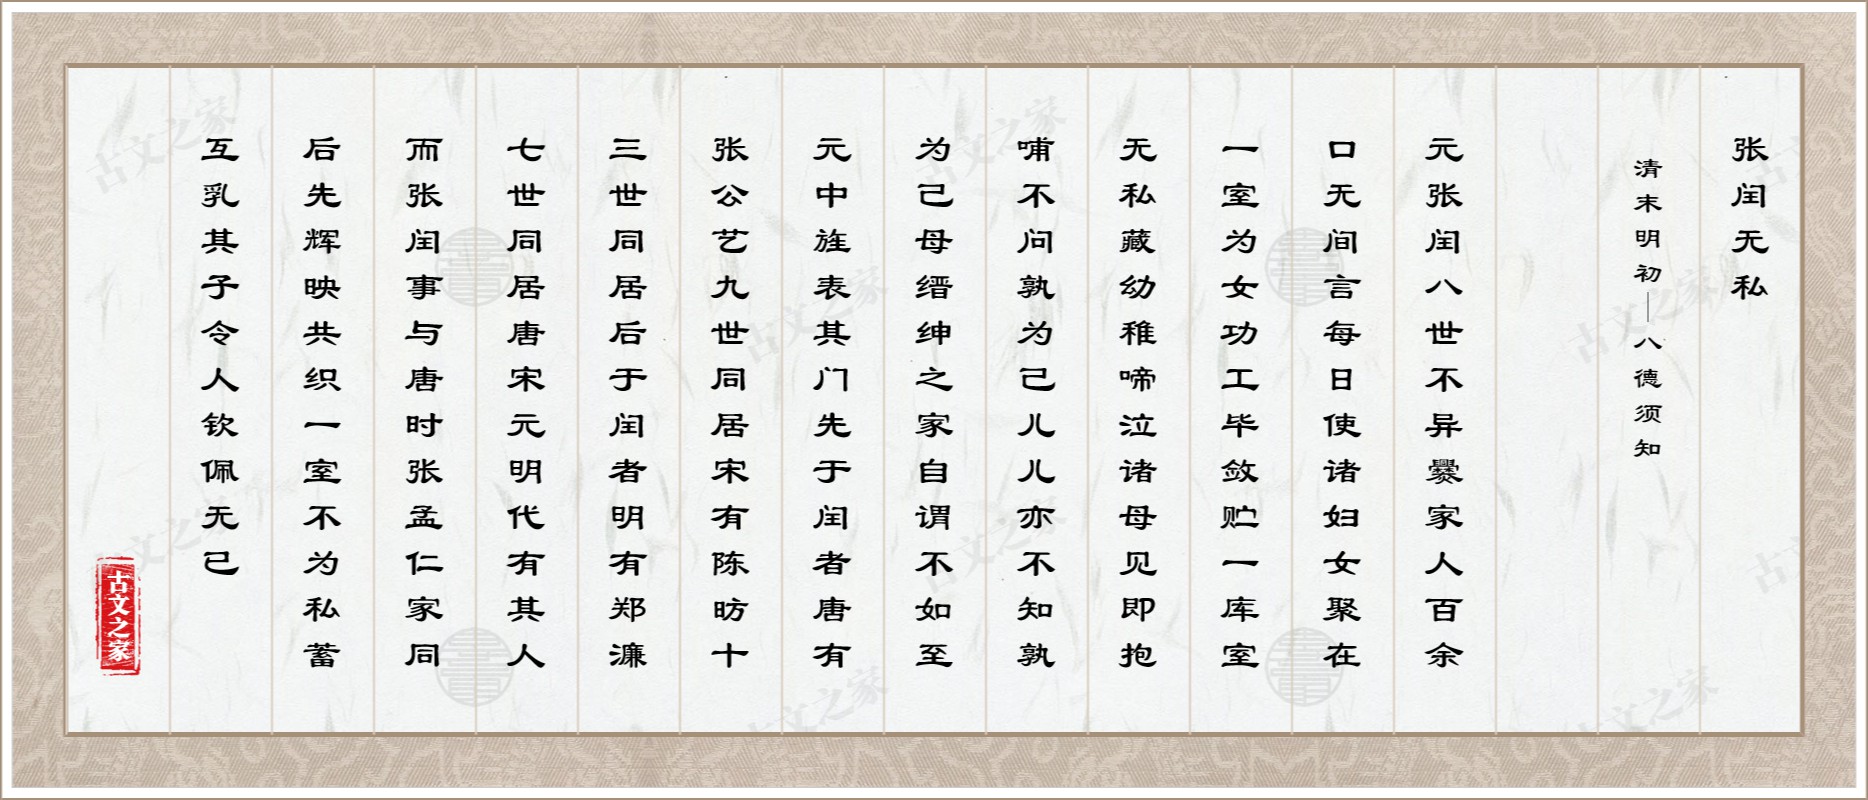 张闰无私
清末明初——八德须知
元张闰八世不异爨家人百余
口无间言每日使诸妇女聚在
一室为女功工毕敛贮一库室
无私藏幼稚啼泣诸母见即抱
哺不问孰为己儿儿亦不知孰
为己母缙绅之家自谓不如至
元中旌表其门先于闰者唐有
张公艺九世同居宋有陈昉十
三世同居后于闰者明有郑濂
七世同居唐宋元明代有其人
而张闰事与唐时张孟仁家同
后先辉映共织一室不为私蓄
互乳其子令人钦佩无已
古文之家